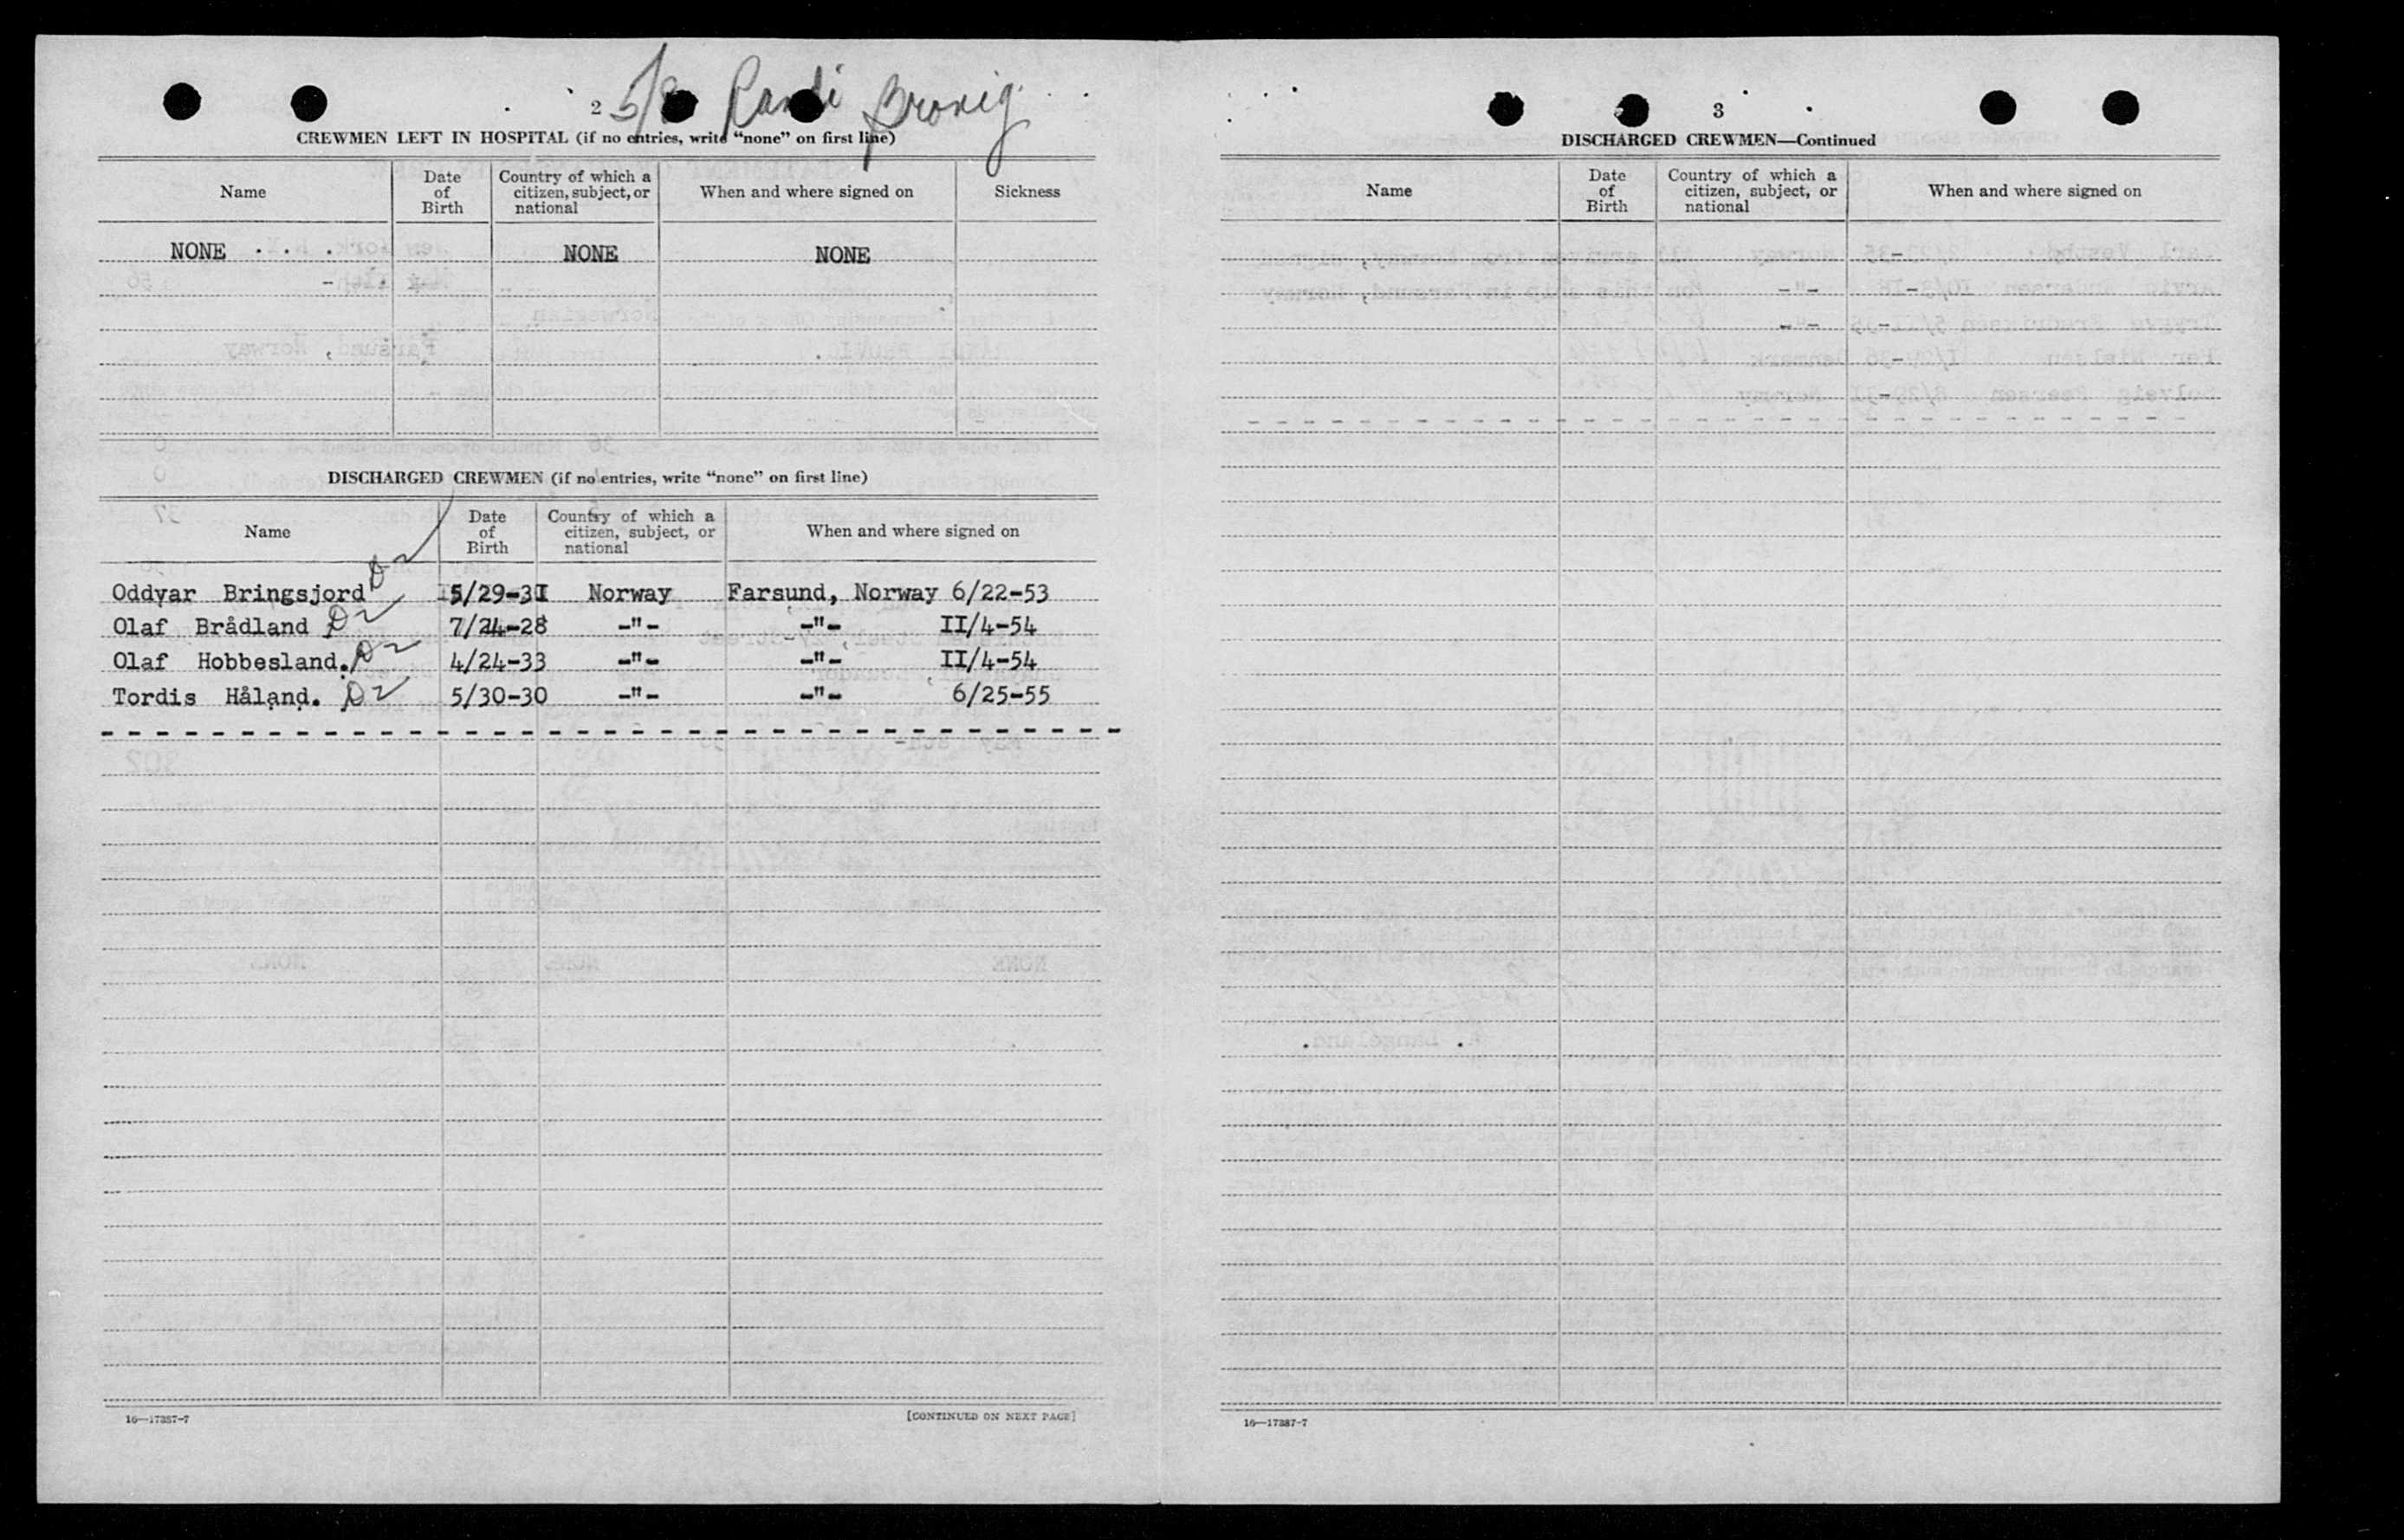 2 5/8 Randi Brovig
CREWMEN LEFT IN HOSPITAL (if no entries, write “none” on first line)
Name Date of Birth Country of which a citizen, subject, or national When and where signed on Sickness
NONE . . . . NONE NONE
DISCHARGED CREWMEN (if no entries, write “none” on first line)
Name Date of Birth Country of which a citizen, subject, or national When and where signed on
Oddvar Bringsjord D2 5/29-3I Norway Farsund, Norway 6/22-53
Olaf Brådland D2 7/24-28 -"- -"- II/4-54
Olaf Hobbesland. D2 4/24-33 -"- -"- II/4-54
Tordis Håland. D2 5/30-30 -"- -"- 6/25-55
16—17387-7 [CONTINUED ON NEXT PAGE]
3
DISCHARGED CREWMEN—Continued
Name Date of Birth Country of which a citizen, subject, or national When and where signed on
16—17387-7